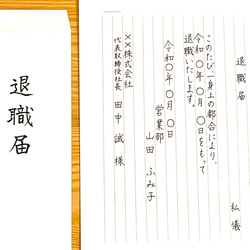 退職届
退職届
私儀
このたび一身上の都合により、
令和〇年〇月〇日をもって
退職いたします。
令和〇年〇月〇日
営業部
山田ふみ子
××株式会社
代表取締役社長 田中誠様